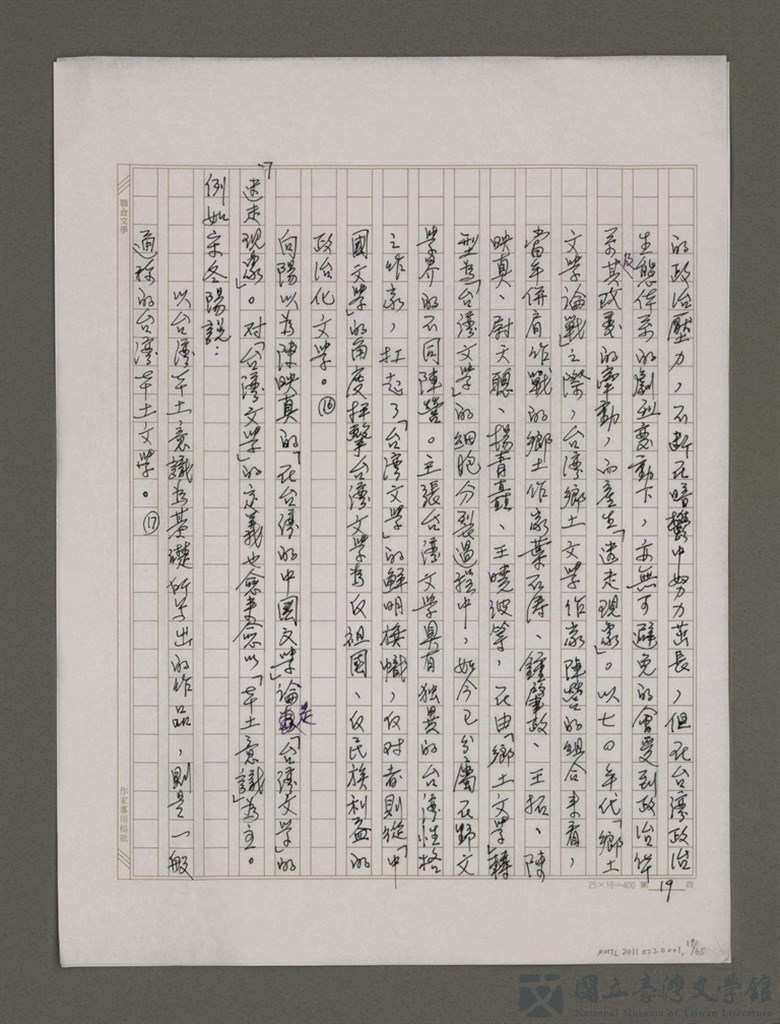 的政治壓力,不斷在暗鬱中努力茁長,但在台灣政治
生態体系的劇烈變動下,亦無可避免的會受到政治体
系及其政爭的牽動,而產生「迷走現象」。以七〇年代「鄉土
文學論戰」之際,台灣鄉土文學作家陣營的組合來看,
當年併肩作戰的鄉土作家葉石濤、鍾肇政、王拓、陳
映真、尉天聰、楊青矗、王曉波等,在由「鄉土文學」轉
型為「台灣文學」的細胞分裂過程中,如今已分屬在野文
學界的不同陣營。主張台灣文學具有獨異的台灣性格
之作家,扛起了「台灣文學」的鮮明旗幟,反對者則從「中
國文學」的角度抨擊台灣文學為反祖國、反民族利益的
政治化文學。⑯
向陽以為陳映真的「在台灣的中國文學」論是「台灣文學」的
迷走現象」。對「台灣文學」的定義也愈來愈以「本土意識」為主。
例如宋冬陽說:
以台灣本土意識為基礎所寫出的作品,則是一般
通稱的台灣本土文學。⑰
聯合文學
作家專用稿紙
25×16=400 第 19 頁
NMTL 20110220001, 19/65
國立臺灣文學館
National Museum of Taiwan Literature